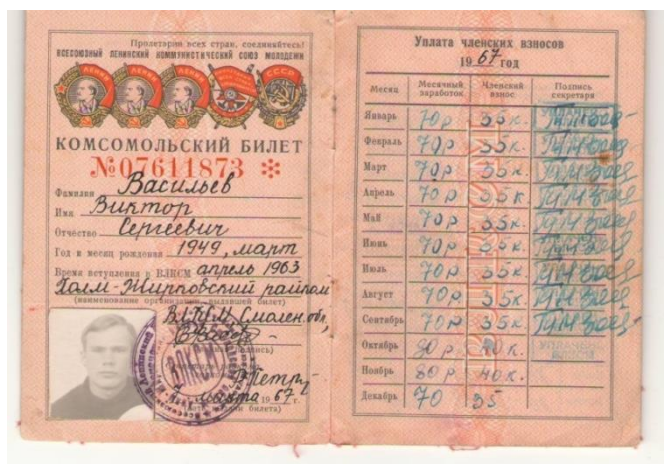 Пролетарии всех стран, соединяйтесь!
ВСЕСОЮЗНЫЙ ЛЕНИНСКИЙ КОММУНИСТИЧЕСКИЙ СОЮЗ МОЛОДЕЖИ
КОМСОМОЛЬСКИЙ БИЛЕТ
№07611873
Фамилия Васильев
Имя Виктор
Отчество Сергеевич
Год и месяц рождения 1949, март
Время вступления в ВЛКСМ апрель 1963
Холм-Жирковский райком
(наименование организации, выдавшей билет)
ВЛКСМ Смолен. обл,
марта 1967 г.
(дата выдачи билета)
Уплата членских взносов
1967 год
Месяц Месячный заработок Членский взнос Подпись секретаря
Январь 70р 35к.
Февраль 70р 35к.
Март 70р 35к.
Апрель 70р 35к.
Май 70р 35к.
Июнь 70р 35к.
Июль 70р 35к.
Август 70р. 35к.
Сентябрь 70р 35к.
Октябрь 80р. 40к.
Ноябрь 80р. 40к.
Декабрь 70 35